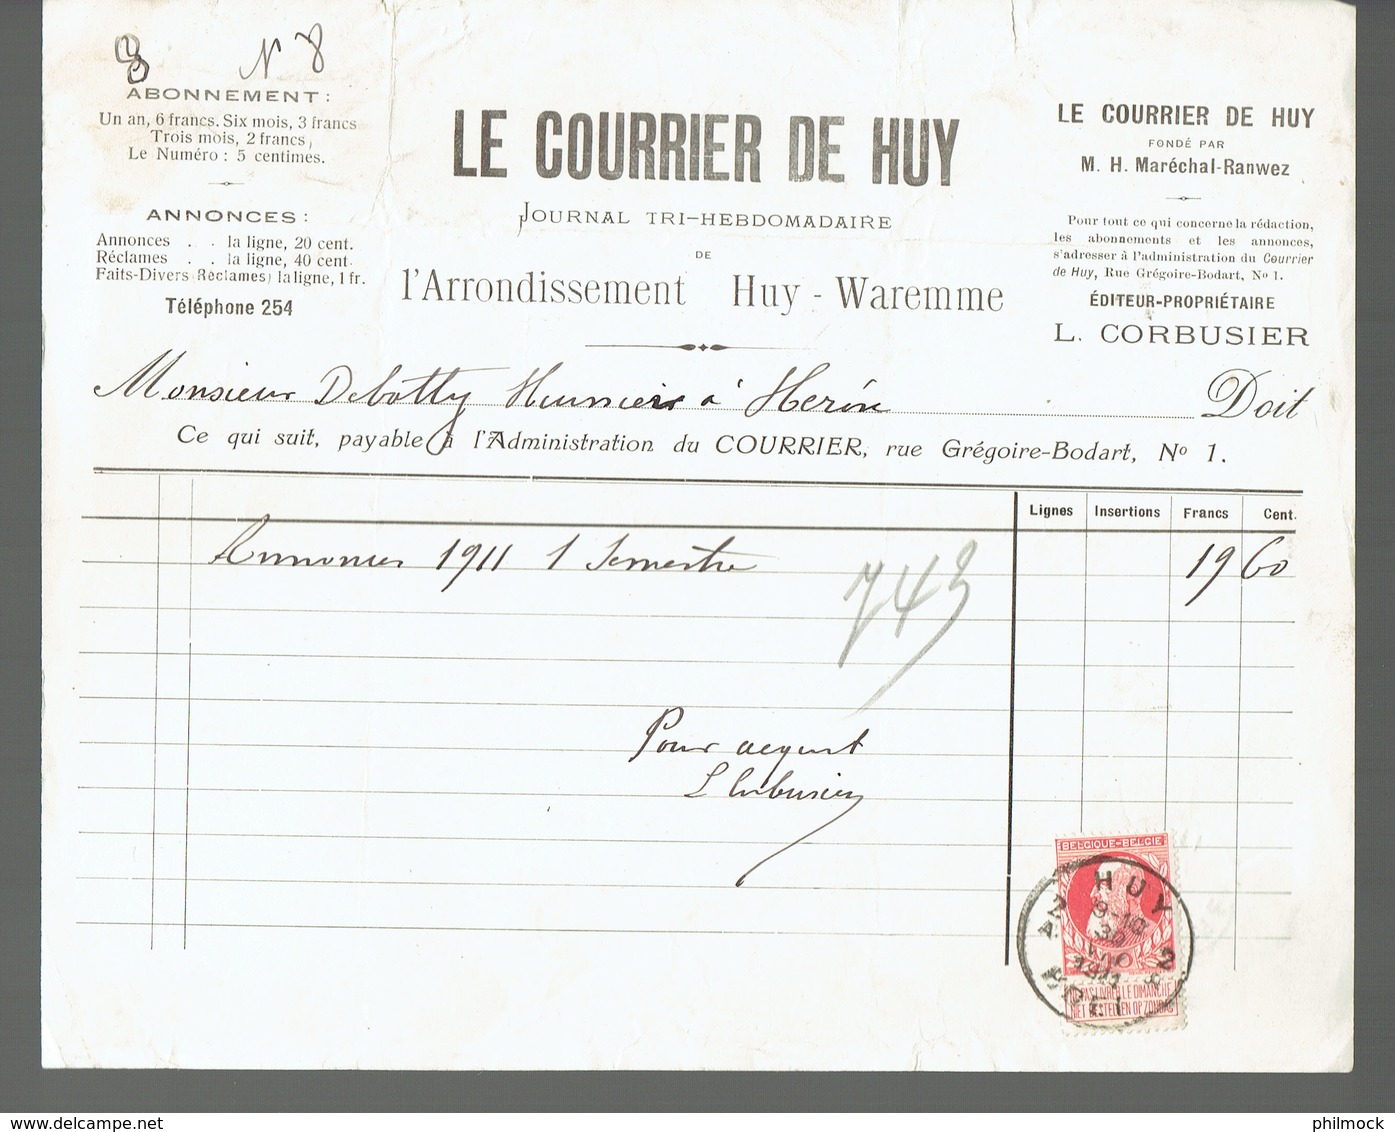 8 N 8
ABONNEMENT:
Un an, 6 francs. Six mois, 3 francs
Trois mois, 2 francs,
Le Numéro : 5 centimes.
ANNONCES:
Annonces . . la ligne, 20 cent.
Réclames . . la ligne, 40 cent.
Faits-Divers (Réclames) la ligne, 1 fr.
Téléphone 254
LE COURRIER DE HUY
JOURNAL TRI-HEBDOMADAIRE
DE
l'Arrondissement Huy - Waremme
LE COURRIER DE HUY
FONDÉ PAR
M. H. Maréchal-Ranwez
Pour tout ce qui concerne la rédaction,
les abonnements et les annonces,
s'adresser à l'administration du Courrier
de Huy, Rue Grégoire-Bodart, No 1.
ÉDITEUR-PROPRIÉTAIRE
L. CORBUSIER
Monsieur Debotty Huissier à Héron Doit
Ce qui suit, payable à l'Administration du COURRIER, rue Grégoire-Bodart, No 1.
Lignes Insertions Francs Cent.
Annonces 1911 1 Semestre 19 60
743
Pour acquit
L Corbusier
BELGIQUE-BELGIË
HUY
9-10
30
1911
2
10
NE PAS LIVRER LE DIMANCHE
NIET BESTELLEN OP ZONDAG
HOEI
delcampe.net
philmock